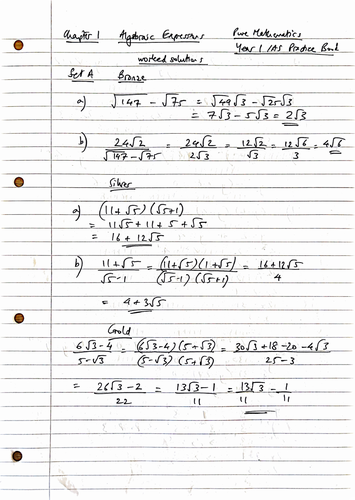 Chapter 1 Algebraic Expressions Pure Mathematics
Year 1 /AS Practice Book
worked solutions
Set A Bronze
a) √147 - √75 = √49√3 - √25√3
= 7√3 - 5√3 = 2√3
b) 24√2/(√147-√75) = 24√2/2√3 = 12√2/√3 = 12√6/3 = 4√6
Silver
a) (11+√5)(√5+1)
= 11√5 + 11 + 5 + √5
= 16 + 12√5
b) (11+√5)/(√5-1) = (11+√5)(1+√5)/(√5-1)(√5+1) = (16+12√5)/4
= 4+3√5
Gold
(6√3-4)/(5-√3) = (6√3-4)(5+√3)/(5-√3)(5+√3) = (30√3+18-20-4√3)/(25-3)
= (26√3-2)/22 = (13√3-1)/11 = 13√3/11 - 1/11